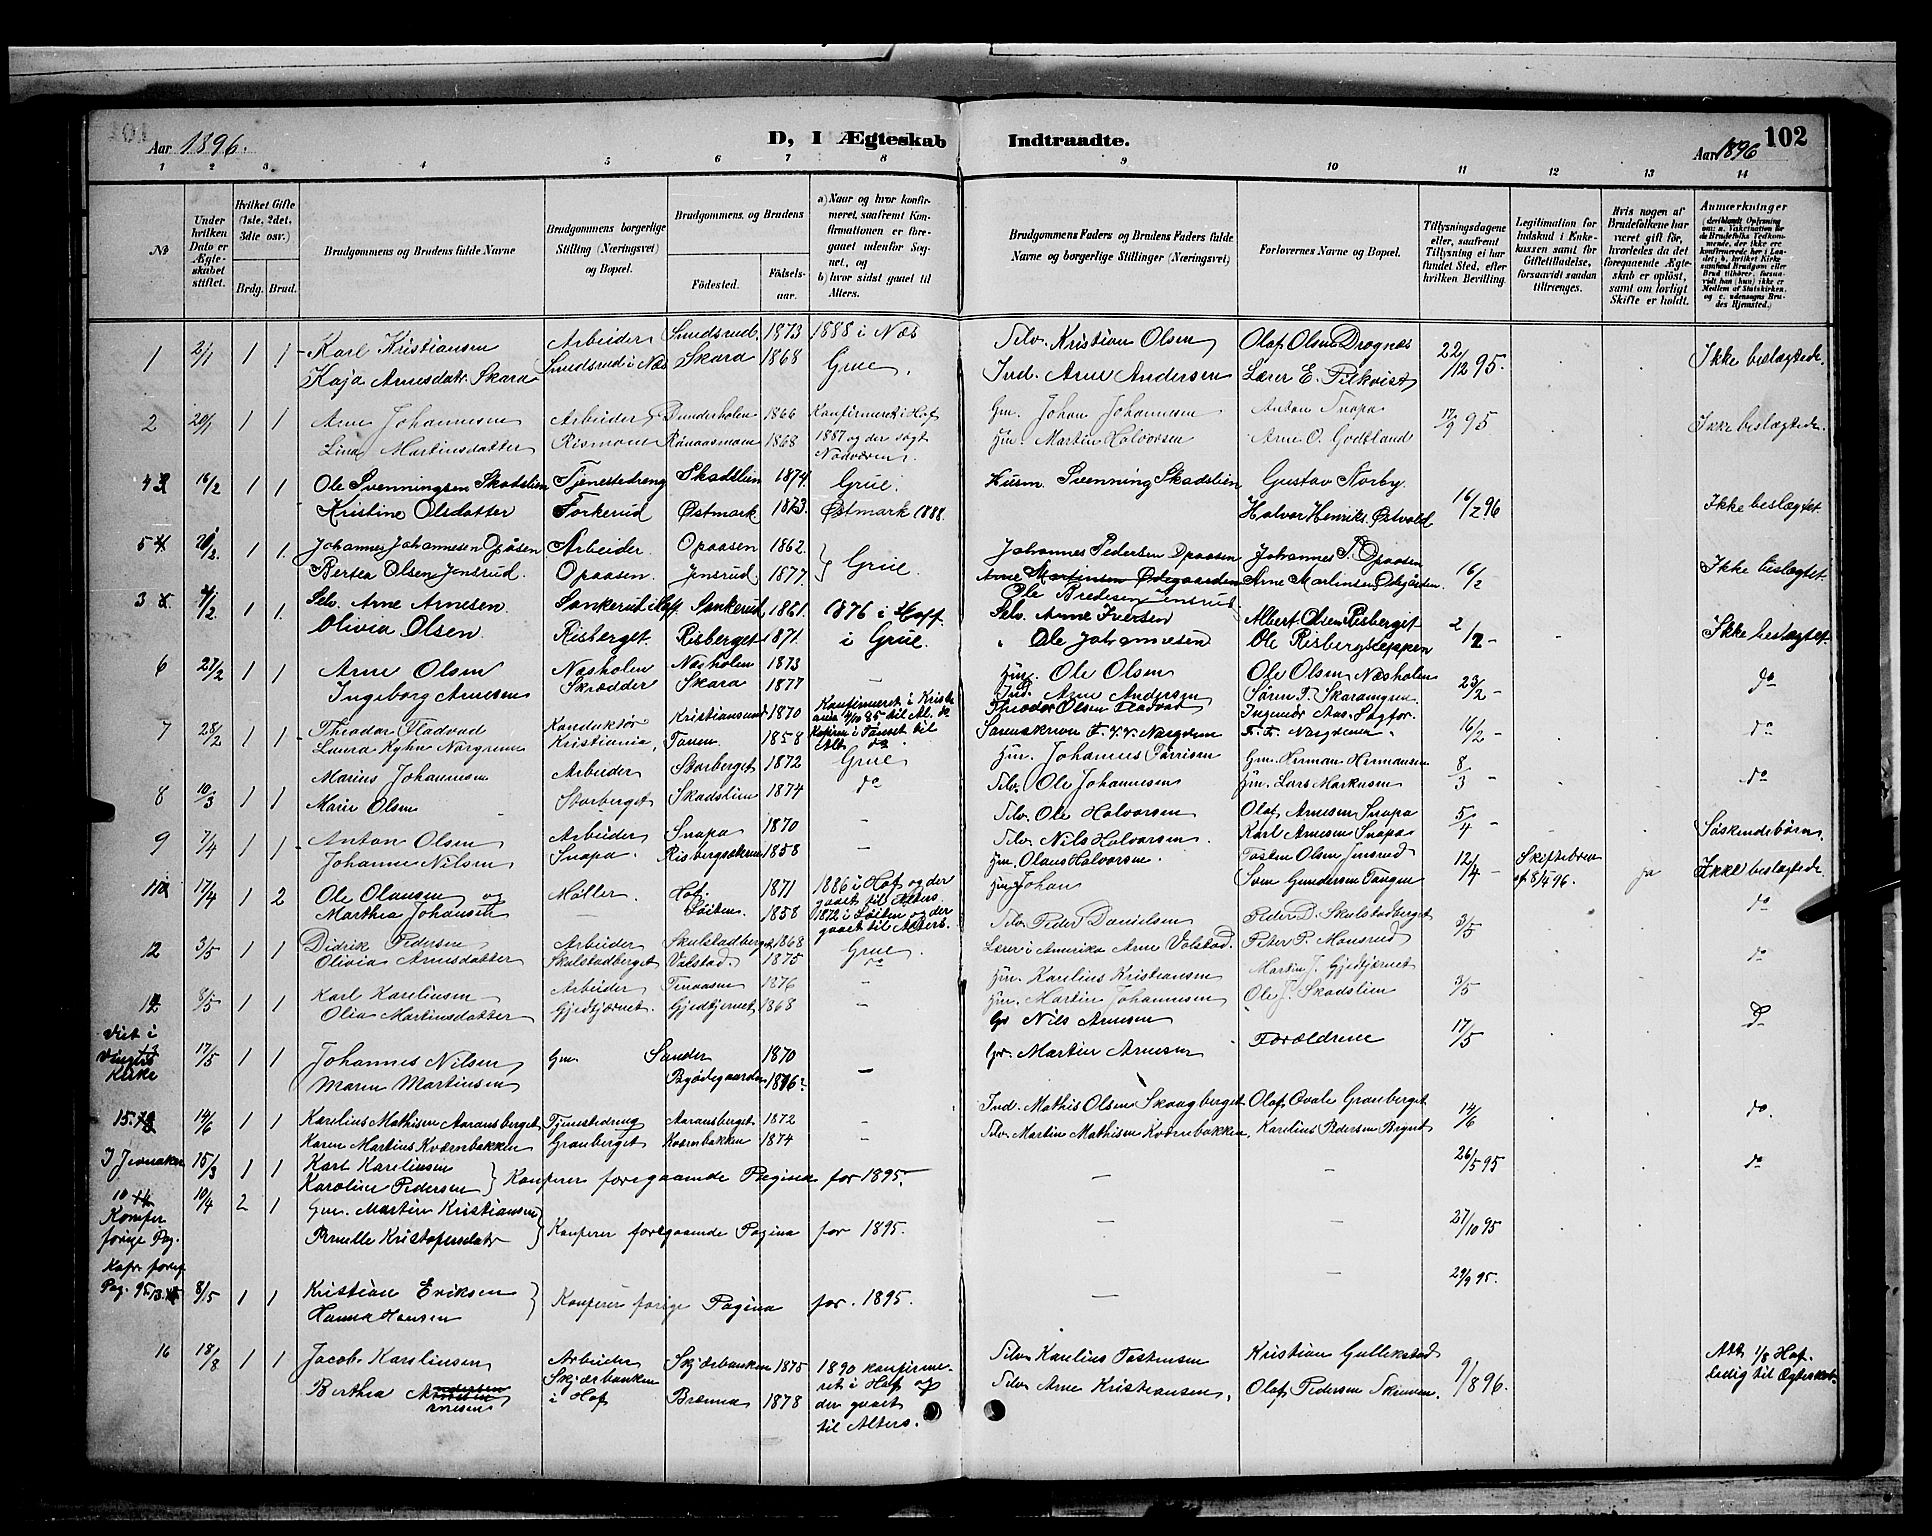 Aar 1896.
D, I Ægteskab Indtraadte.
Aar 1896
102
1 2 3 4 5 6 7 8 9 10 11 12 13 14
No
Under hvilken Dato er Ægteskabet stiftet.
Hvilket Gifte (1ste, 2det, 3die osv.)
Brdg. Brud.
Brudgommens og Brudens fulde Navne
Brudgommens borgerlige Stilling (Næringsvei) og Bopæl.
Brudgommens og Brudens
Födested.
Födselsaar.
a) Naar og hvor konfirmeret, saafremt Konfirmationen er foregaaet udenfor Sognet, og
b) hvor sidst gaaet til Alters.
Brudgommens Faders og Brudens Faders fulde Navne og borgerlige Stillinger (Næringsvei)
Forlovernes Navne og Bopæl.
Tillysningsdagene eller, saafremt Tillysning ei har fundet Sted, efter hvilken Bevilling.
Legitimation for Indskud i Enkekassen samt for Giftetilladelse, forsaavidt saadan tiltrænges.
Hvis nogen af Brudefolkene har været gift för, hvorledes da det foregaaende Ægteskab er oplöst, samt om lovligt Skifte er holdt.
Anmærkninger
1 2/1 1 1 Karl Kristiansen Arbeider Smedsrud 1873 1888 i Næs Selv. Kristian Olsen Olaf Olsen Dragnæs 22/12 95. Ikke beslægtede.
Kaja Arnesdatr Skara Smedsrud i Næs Skara 1868 Grue. Ind. Arne Andersen Lærer E. Pilkvist
2 20/1 1 1 Arne Johannesen Arbeider Dunderholen 1866 Konfirmeret i Hof Gm. Johan Johannesen Anton Snapa 17/9 95 Ikke beslægtede.
Lina Martinsdatter Rismoen 1868 1887 og der søgt Nadveren. Hm. Martin Halvorsen Arne O. Godtland
4 16/2 1 1 Ole Svenningsen Skadslien Tjenestedreng Skadslien 1874 Grue. Husm. Svenning Skadslien Gustav Norby. 16/2 96 Ikke beslægtet.
Kristine Olsdatter Torkerud Østmark 1873. Østmark 1888. Halvor Henriks. Østvold
5 1 1. Johannes Johannesen Opåsen Arbeider. Opaasen 1862. } Grue. Johannes Pedersen Opaasen Johannes P. Opaasen 16/2 Ikke beslægtet.
Bertea Olsen Jensrud. Opaasen. Jensrud 1877. Arne Martinsen Ødegaarden Arne Martinsen Ødgården.
Ole Bredesen Jensrud.
3 1 1. Selv. Arne Arnesen. Sankerud i Hoff Sankerud 1861. 1876 i Hoff. Selv. Arne Iversen Albert Olsen Risberget 2/2 - Ikke beslægtet.
Olivia Olsen. Risberget. Risberget 1871 i Grue. " Ole Johannesen Ole Risbergseppen
6 27/2 1 1 Arne Olsen Næsholen Næsholen 1873 - Hm. Ole Olsen Ole Olsen Næsholen 23/2 - do
Ingeborg Arnesen Skrædder Skara 1877 Ind. Arne Andersen Søren T. Skaramoen
7 28/2 1 1 Theodor Fladvad Konduktör Kristiansund 1870 Konfirmeret i Kristiania 4/10 85 til Al. do Theodor Olsen Fladvad Ingeniör Aas. Sagfor. 16/2 - do
Laura Kyhn Nörgren Kristiania, 1858
8 10/3 1 1 Marius Johannesen Arbeider Storberget 1872 Grue Hm. Johannes Torrisen Gm. Herman Hermansen 8/3 - do
Marie Olsen Storberget Skadslien 1874 do Selv. Ole Johannesen Hm. Lars Markusen
9 7/4 1 1 Anton Olsen Arbeider Snapa 1870 - Selv. Ole Halvorsen Olaf Arnesen Snapa 5/4 - Söskendebörn.
Johanne Nilsen Snapa. Risbergsökren 1858 - Selv. Nils Halvorsen Karl Arnesen Snapa
11 17/4 1 2 Ole Olausen og Möller. Hof. 1871 1886 i Hof og der gaaet til Alters Hm. Olaus Halvorsen. Tosten Olsen Jensrud 12/4 - Skiftebrev af 8/4 96. ja Ikke beslægtede
Marthea Johansen - Löiten. 1858 1872 i Löiten og der gaaet til Alters. Hm. Johan Sven Gundersen Tangen do
12 3/5 1 1 Didrik Pedersen Arbeider Skulstadberget 1868 Grue Selv. Peder Danielsen Peder D. Skulstadberget 3/5 do
Olivia Arnesdatter Skulstadberget Valstad. 1875 do Lærer i Amerika Arne Valstad. Peter P. Monsrud
8/5 1 1 Karl Karelinsen Arbeider Tinaasen 1876 - Hm. Karelius Kristiansen Martin J. Gjedtjernet 3/5
Olia Martinsdatter Gjedtjernet. Gjedtjernet 1868 - Hm. Martin Johannesen Ole J. Skadslien
Viet i Vinger Kirke 17/5 1 1 Johannes Nilsen Gm. Sander 1870 - Gr. Nils Arnesen Forældrene 17/5
Maren Martinsen Bgödegaarden 1876. Gr. Martin Arnesen
15. 14/6 1 1 Karelius Mathisen Aaransberget Tjenestedreng Aaransberget 1872 - Ind. Mathis Olsen Skaugberget Olaf Ovale Granberget 14/6 do.
Karen Martins Kværnbakken Granberget Kværnbakken 1874 - Selv. Martin Mathisen Kværnbakken, Karelius Pedersen Brynt
I Jevnaker 15/3 1 1 Karl Karelinsen } Konferer foregaaende Pagina for 1895. - - 26/5 95 do
Karoline Pedersen
10 10/4 2 1 Gm. Martin Kristiansen } Konferer foregaaende Pagina for 1895. - - 27/10 95
Konfer forige Pag. Pernille Kristofersdatr
Kofr forig Pag. 95 8/5 1 1 Kristian Eriksen } Konferer forige Pagina for. 1895. - - 29/9 95.
Hanna Hansen
16 18/8 1 1 Jacob Karelinsen Arbeider Skjærbanken 1875 1890 konfirmeret i Hof og der gaaet til Alters. Selv. Karelius Tostensen Kristian Gullikstad 9/8 96. Att. 1/8 Hof. ledig til Ægteskab.
Berthea Arnesen Skjærbanken i Hof Brænna 1878 Selv. Arne Kristiansen, Olaf Pedersen Skinnen.